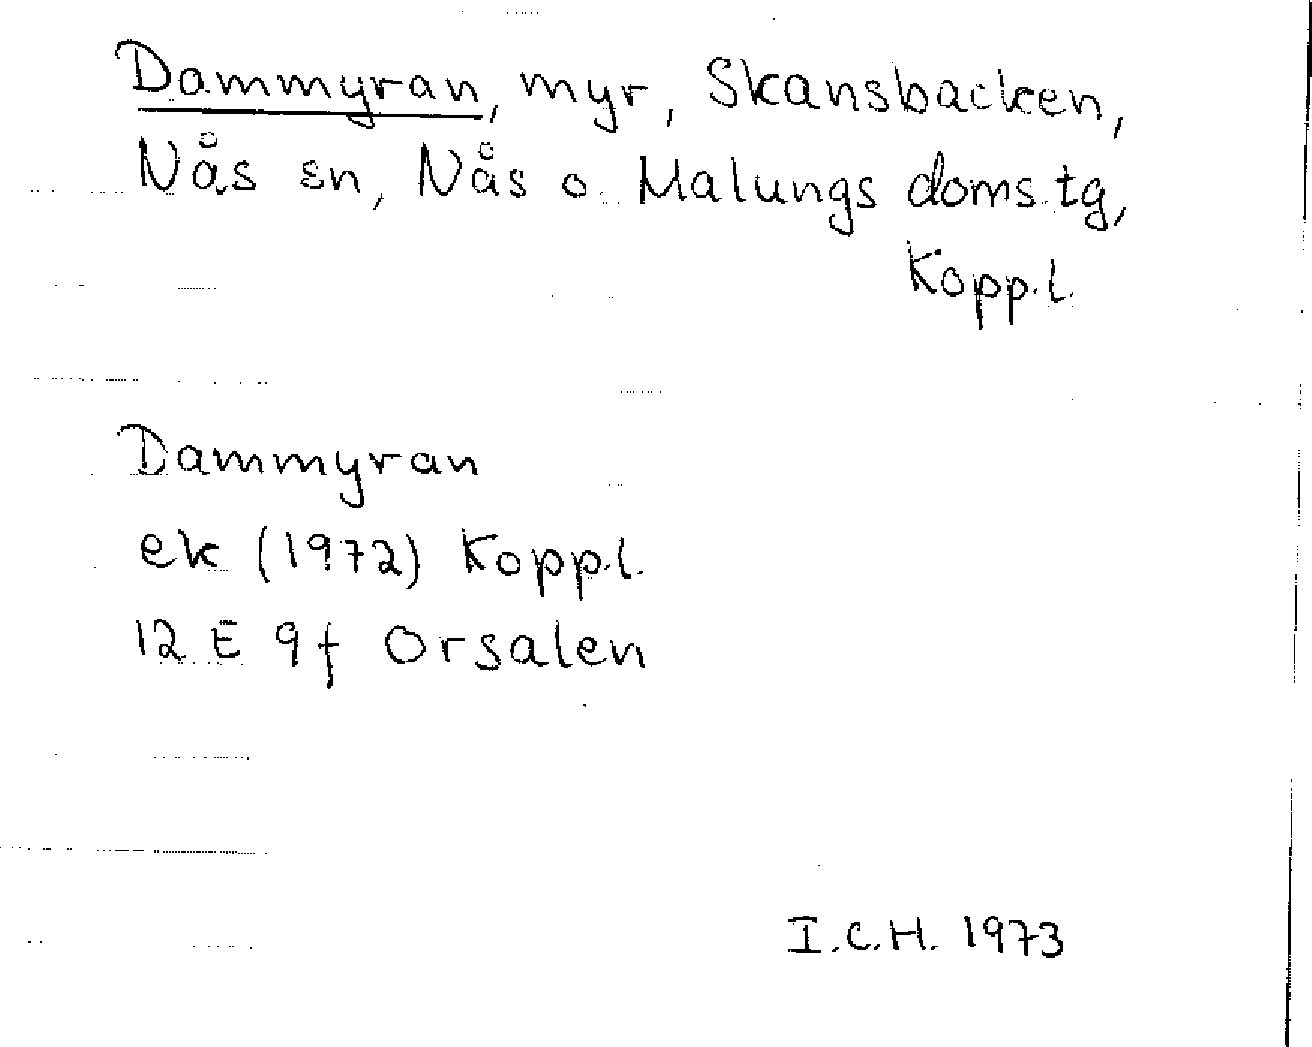 Dammyran, myr, Skansbacken,
Nås sn, Nås o. Malungs doms.tg,
Kopp.l.
Dammyran
ek (1972) Kopp.l.
12 E 9f Orsalen
I.C.H. 1973